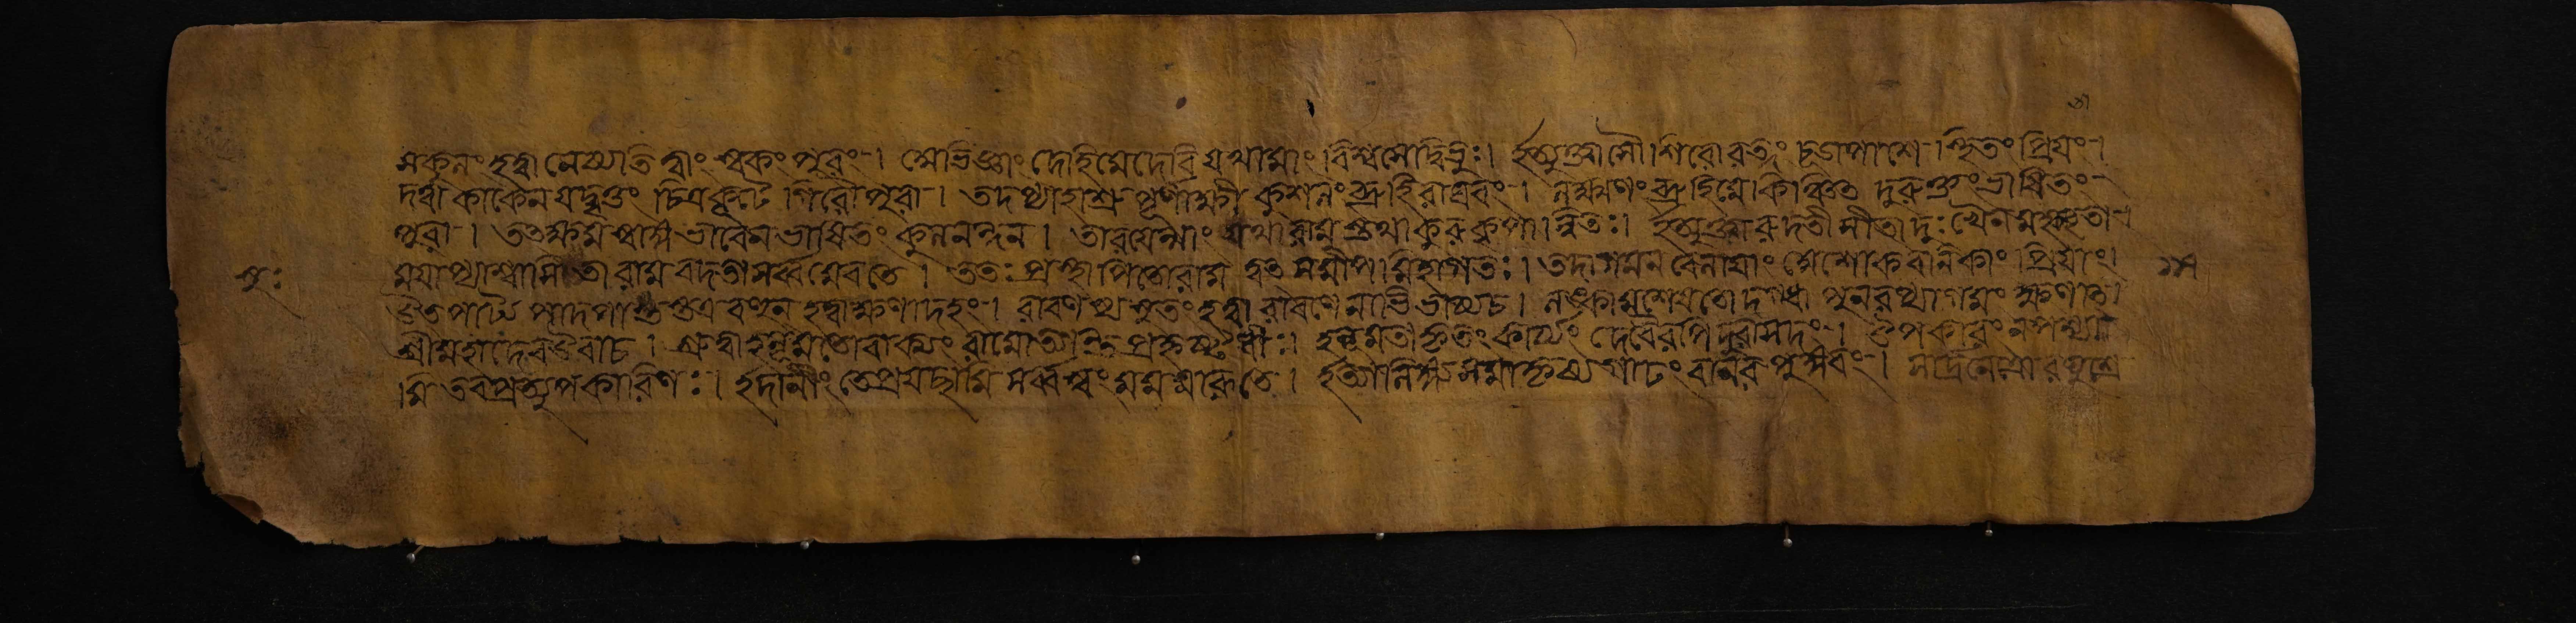 সকুলং হত্বা নেষ্যতি ত্বাং স্বকং পুরং । মেভিজ্ঞাং দেহি মে দেবি যথা মাং বিশ্বসেদ্বিভুঃ। ইত্যুক্তা সৌ শিরোরত্নং চূডাপাশে স্থিতং প্রিয়ং।
দত্বা কাকেন যদ্বৃত্তং চিত্রকূটে গিরৌ পুরা । তদপ্যাহাশ্রুপূর্ণাক্ষী কুশলং ব্রূহি রাঘবং । লক্ষ্মণং ব্রূহি মে কিঞ্চিৎ দুরুক্তং ভাষিতং
পুরা । তৎক্ষমস্বাজ্ঞভাবেন ভাষিতং কুলনন্দন । তারয়েন্মাং যথা রামস্তথা কুরু কৃপান্বিতঃ। ইত্যুক্ত্বা রুদতী সীতা দুঃখেন মহতা
সুঃ
ময়াপ্যাশ্বাসিতা রাম বদতা সর্ব্বমেব তে । ততঃ প্রস্থাপিতো রাম ত্বৎসমীপমিহাগতঃ। তদাগমনবেলায়াং মশোকবনিকাং প্রিয়াং।
উৎপাট্য পাদপাংস্তত্র বহূন্ হত্বা ক্ষণাদহং। রাবণস্য সুতং হত্বা রাবণেনাভিভাষ্য চ । লঙ্কামশেষতো দগ্ধা পুনরপ্যাগমং ক্ষণাৎ।
শ্রীমহাদেব উবাচ । শ্রুত্বা হনূমতো বাক্যং রামোত্যন্ত প্রহৃষ্টধীঃ। হনূমতা কৃতং কার্য্যং দেবৈরপি দুরাসদং। উপকারং নপশ্যা
মি তব প্রত্যুপকারিণঃ। ইদানীং তে প্রযছামি সর্ব্বস্বং মম মারুতে । ইত্যালিঙ্গ্য সমাকৃষ্য গাঢং বানরপুঙ্গবং। সার্দ্রনেত্রো রঘুশ্রে